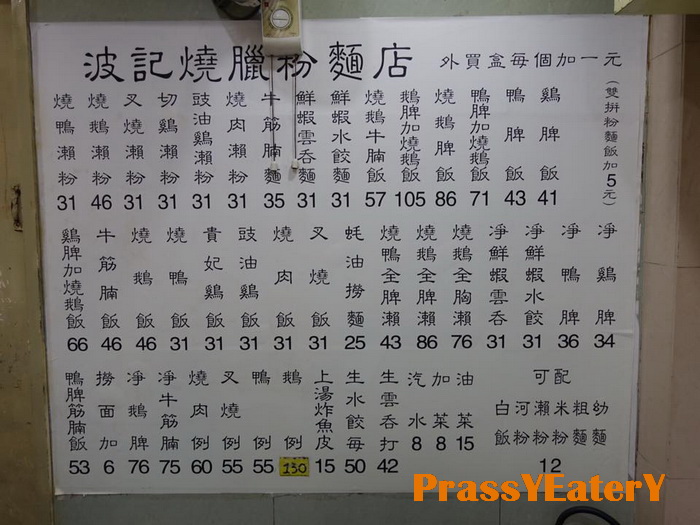 波記燒臘粉麵店
外買盒每個加一元
(雙拼粉麵飯加5元)
燒鴨瀨粉 31
燒鵝瀨粉 46
叉燒瀨粉 31
切雞瀨粉 31
豉油雞瀨粉 31
燒肉瀨粉 31
牛筋腩麵 35
鮮蝦雲吞麵 31
鮮蝦水餃麵 31
燒鵝牛腩飯 57
鵝脾加燒鵝飯 105
燒鵝脾飯 86
鴨脾加燒鵝飯 71
鴨脾飯 43
雞脾飯 41
雞脾加燒鵝飯 66
牛筋腩飯 46
燒鵝飯 46
燒鴨飯 31
貴妃雞飯 31
豉油雞飯 31
燒肉飯 31
叉燒飯 31
蚝油撈麵 25
燒鴨全脾瀨 43
燒鵝全脾瀨 86
燒鵝全胸瀨 76
淨鮮蝦雲吞 31
淨鮮蝦水餃 31
淨鴨脾 36
淨雞脾 34
鴨脾筋腩飯 53
撈面加 6
淨鵝脾 76
淨牛筋腩 75
燒肉例 60
叉燒例 55
鴨例 55
鵝例 130
上湯炸魚皮 15
生水餃每 50
生雲吞打 42
汽水 8
加菜 8
油菜 15
可配
白飯 河粉 瀨粉 米粉 粗麵 幼麵
12
PrassYEaterY